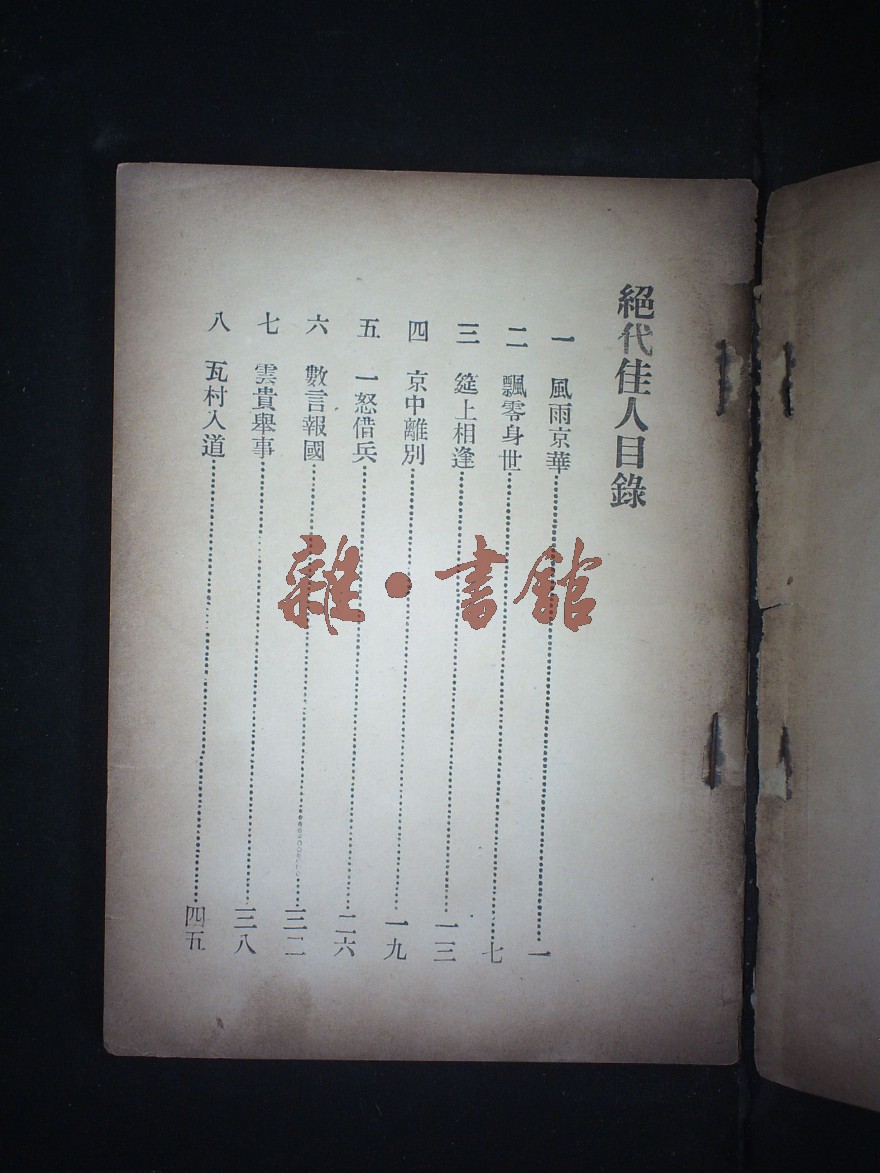 絕代佳人目錄
一 風雨京華 一
二 飄零身世 七
三 筵上相逢 一三
四 京中離別 一九
五 一怒借兵 二六
六 數言報國 三二
七 雲貴舉事 三八
八 瓦村入道 四五
雜·書館